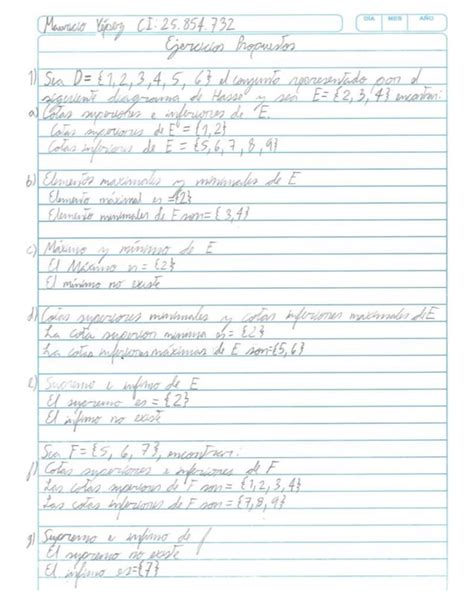 Mauricio Yépez CI: 25.854.732
DIA MES AÑO
Ejercicios Propuestos
1) Sea D= {1,2,3,4,5, 6} el conjunto representado por el
siguiente diagrama de Hasse y sea E={2,3,4} encontrar:
a) Cotas superiores e inferiores de E.
Cotas superiores de E = {1,2}
Cotas inferiores de E = {5,6,7,8,9}
b) Elementos maximales y minimales de E
Elemento máximal es ={2}
Elemento minimales de F son={3,4}
c) Máximo y mínimo de E
El Máximo es = {2}
El mínimo no existe
d) Cotas superiores minimales y cotas inferiores maximales de E
La cota superior minima es = {2}
La cotas inferiores máximas de E son={5,6}
e) Supremo e infimo de E
El supremo es = {2}
El infimo no existe
Sea F={5, 6, 7}, encontrar:
f) Cotas superiores e inferiores de F
Las cotas superiores de F son = {1,2,3,4}
Las cotas inferiores de F son = {7,8,9}
g) Supremo e infimo de f
El supremo no existe
El infimo es={7}